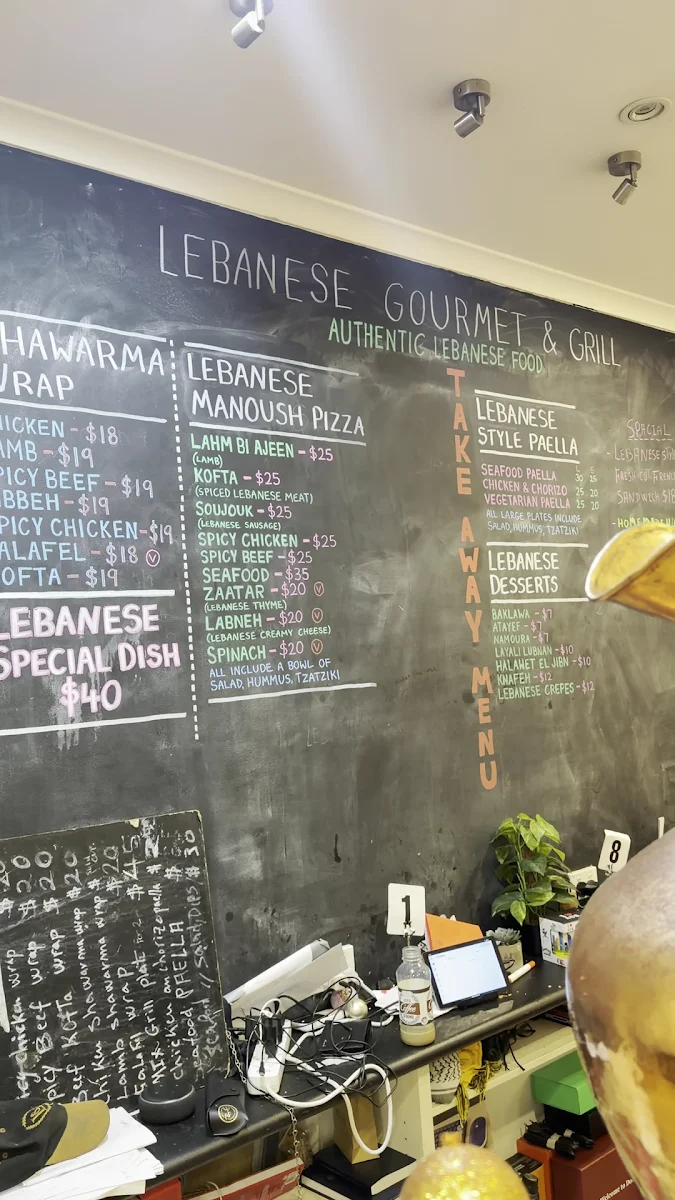 LEBANESE GOURMET & GRILL
AUTHENTIC LEBANESE FOOD
HAWARMA
WRAP
HICKEN - $18
AMB - $19
PICY BEEF - $19
IBBEH - $19
PICY CHICKEN - $19
ALAFEL - $18 V
OFTA - $19
LEBANESE
SPECIAL DISH
$40
LEBANESE
MANOUSH PIZZA
LAHM BI AJEEN - $25
(LAMB)
KOFTA - $25
(SPICED LEBANESE MEAT)
SOUJOUK - $25
(LEBANESE SAUSAGE)
SPICY CHICKEN - $25
SPICY BEEF - $25
SEAFOOD - $35
ZAATAR - $20 V
(LEBANESE THYME)
LABNEH - $20 V
(LEBANESE CREAMY CHEESE)
SPINACH - $20 V
ALL INCLUDE A BOWL OF
SALAD, HUMMUS, TZATZIKI
TAKE AWAY MENU
LEBANESE
STYLE PAELLA
L S
SEAFOOD PAELLA 30 25
CHICKEN & CHORIZO 25 20
VEGETARIAN PAELLA 25 20
ALL LARGE PLATES INCLUDE
SALAD, HUMMUS, TZATZIKI
LEBANESE
DESSERTS
BAKLAWA - $7
ATAYEF - $7
NAMOURA - $7
LAYALI LUBNAN - $10
HALAWET EL JIBN - $10
KNAFEH - $12
LEBANESE CREPES - $12
SPECIAL
- LEBANESE
FRESH CUT FRENCH
SANDWICH $18
- HOMEMADE
chicken wrap
Spicy Beef wrap $20
Beef Kofta wrap $20
shawarma wrap $
Lamb wrap $20
Falafel wrap
Mix Grill plate $45
chicken an chorizo paella $
seafood PAELLA $30
1
8